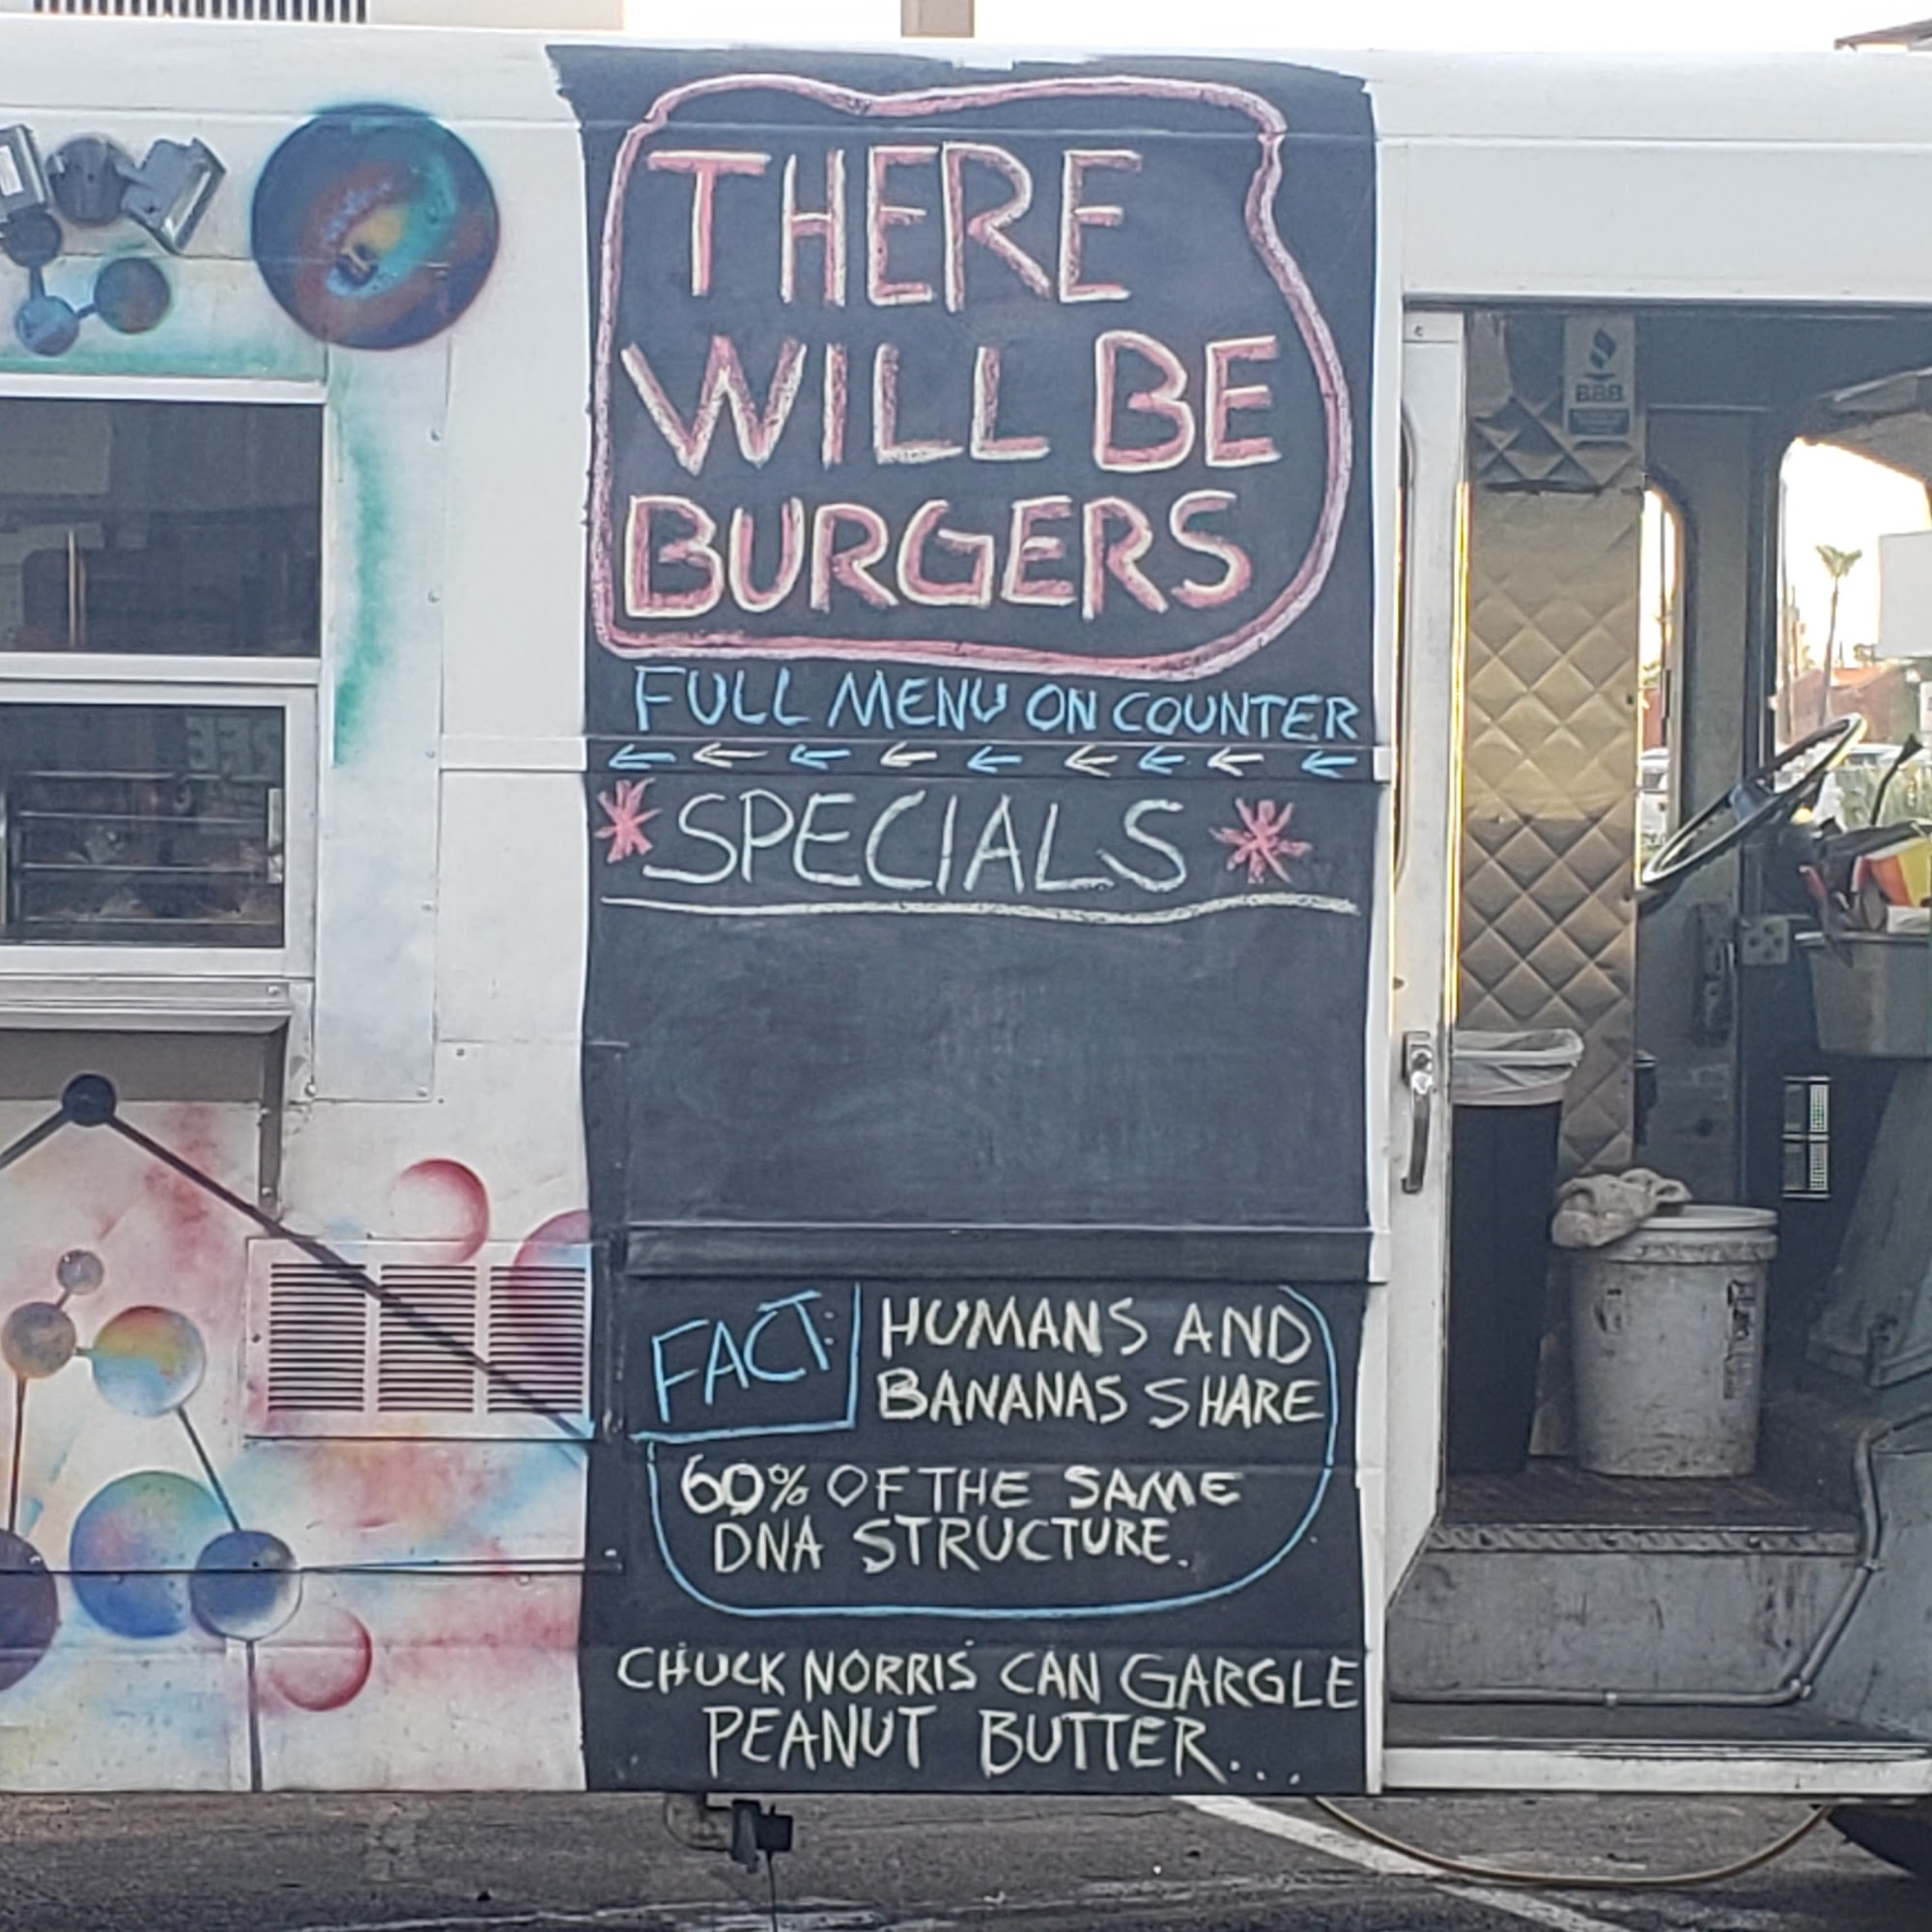 THERE
WILL BE
BURGERS
FULL MENU ON COUNTER
* SPECIALS *
FACT: HUMANS AND
BANANAS SHARE
60% OF THE SAME
DNA STRUCTURE.
CHUCK NORRIS CAN GARGLE
PEANUT BUTTER...
BBB